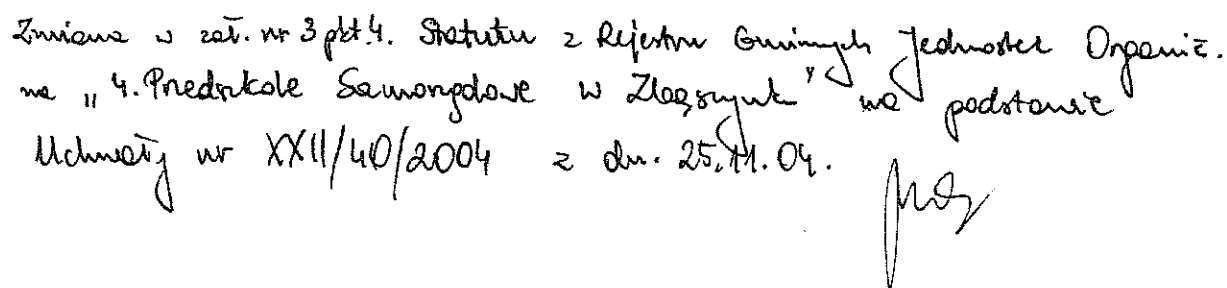 Zmiana w zał. nr 3 pkt. 4. Statutu z Rejestru Gminnych Jednostek Organiz.
na „4. Przedszkole Samorządowe w" na podstawie
Uchwały nr XXII/40/2004 z dn. 25.11.04.